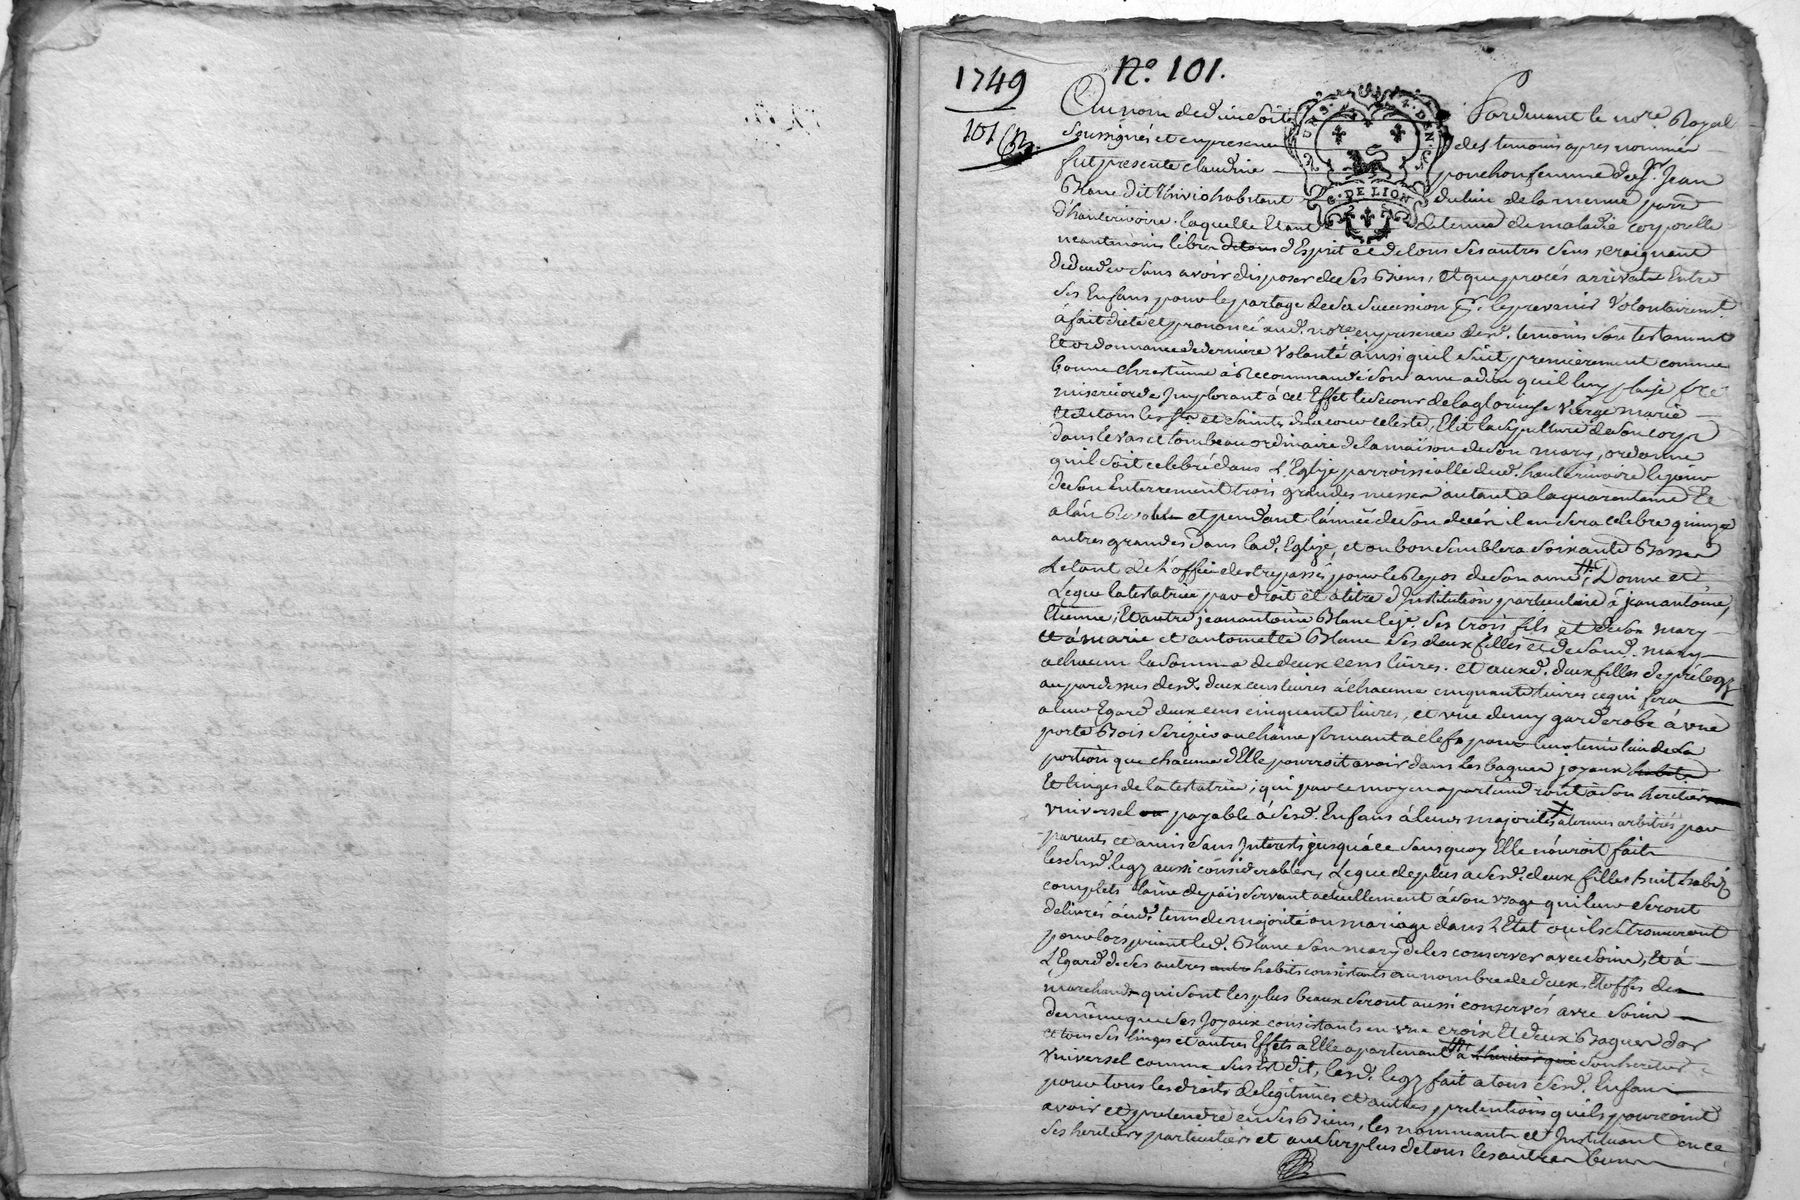 1749
N.º 101.
101
Au nom de dieu soit Pardevant le nore Royal
soussigné et en presence des temoins apres nommes
fut presente Claudine ponchon femme de sr. Jean
Blanc dit Thivio habitant du lieu de la menue parr
G. DE LION
d'hauterivoire. laquelle Etant detenue de maladie corporelle
neantmoins libre de tous d'Esprit et de tous ses autres sens, craignant
de deceder sans avoir disposer de ses Biens, Et que procés arrivat Entre
ses Enfans pour le partage de sa succession Et les prevenir volontairemt.
à fait dicté et prononcé aud. nore. en presence desd. temoins son testament
Et ordonnance de derniere volonté ainsi quil suit, premierement comme
bonne chrestienne à Recommandé son ame a dieu quil luy plaise
misericorde Implorant à cet Effet le secour de la glorieuse vierge marie
Et de tous les sts. et saintes de la cour celeste, Elit la sepulture de son corps
dans le vas et tombeau ordinaire de la maison de son mary, ordonne
quil soit celebré dans L'Eglize parroissialle dud. hauterivoire le jour
de son Enterrement trois grandes messes autant a la quarantaine Et
a l'an Revolu et pendant l'année de son decés il en sera celebré quinze
autres grandes dans lad. Eglize, et ou bon semblera soixante Basses
Le tout de L'office des trepassés pour le Repos de son ame, Donne et
Legue la testatrice par droit et à titre d'Institution particuliere à jean antoine,
Etienne, Et autre jean antoine Blanc le je. ses trois fils et de son mary
Et à marie et antoinette Blanc ses deux filles et de sond. mary
a chacun la somme de deux cens livres. et auxd. deux filles de prélegz
au par dessus desd. deux cens livres à chacune cinquante livres ce qui fera
a leur Egard deux cens cinquante livres, et une garderobe à une
porte Bois serizier ou chaine fermant a clef pour leur tenir lieu de la
portion que chacune d'Elle pourroit avoir dans les bagues joyaux habits
Et linges de la testatrice; qui par ce moyen apartiendront à son heritier
universel ou payable à sesd. Enfans à leurs majorités a termes arbitrés par
parents et amis sans Interests jusquá ce sans quoy Elle n'auroit fait
les susd. legz aussi considerables, Legue de plus a sesd. deux filles huit habits
complets laine de païs servant actuellement à son usage qui leur seront
delivrés aud. tems de majorité ou mariage dans L'Etat ou ils se trouveront
pour lors priant led. Blanc son mary de les conserver avec soin, Et à
L'Egard de ses autres autres habits consistants au nombre de deux Etoffes de
marchands qui sont les plus beaux seront aussi conservés avec soin
de même que ses Joyaux consistants en une croix Et deux Bagues d'or
et tous ses linges et autres Effets a Elle apartenant à l'heritier qui son heritier
universel comme sus Est dit, lesd. legz fait a tous sesd. Enfans
pour tous les droits de legitimes et autres pretentions quils pourroint
avoir et pretendre en ses Biens, les nommant et Instituant en ce
ses heritiers particuliers et au surplus de tous les autres biens